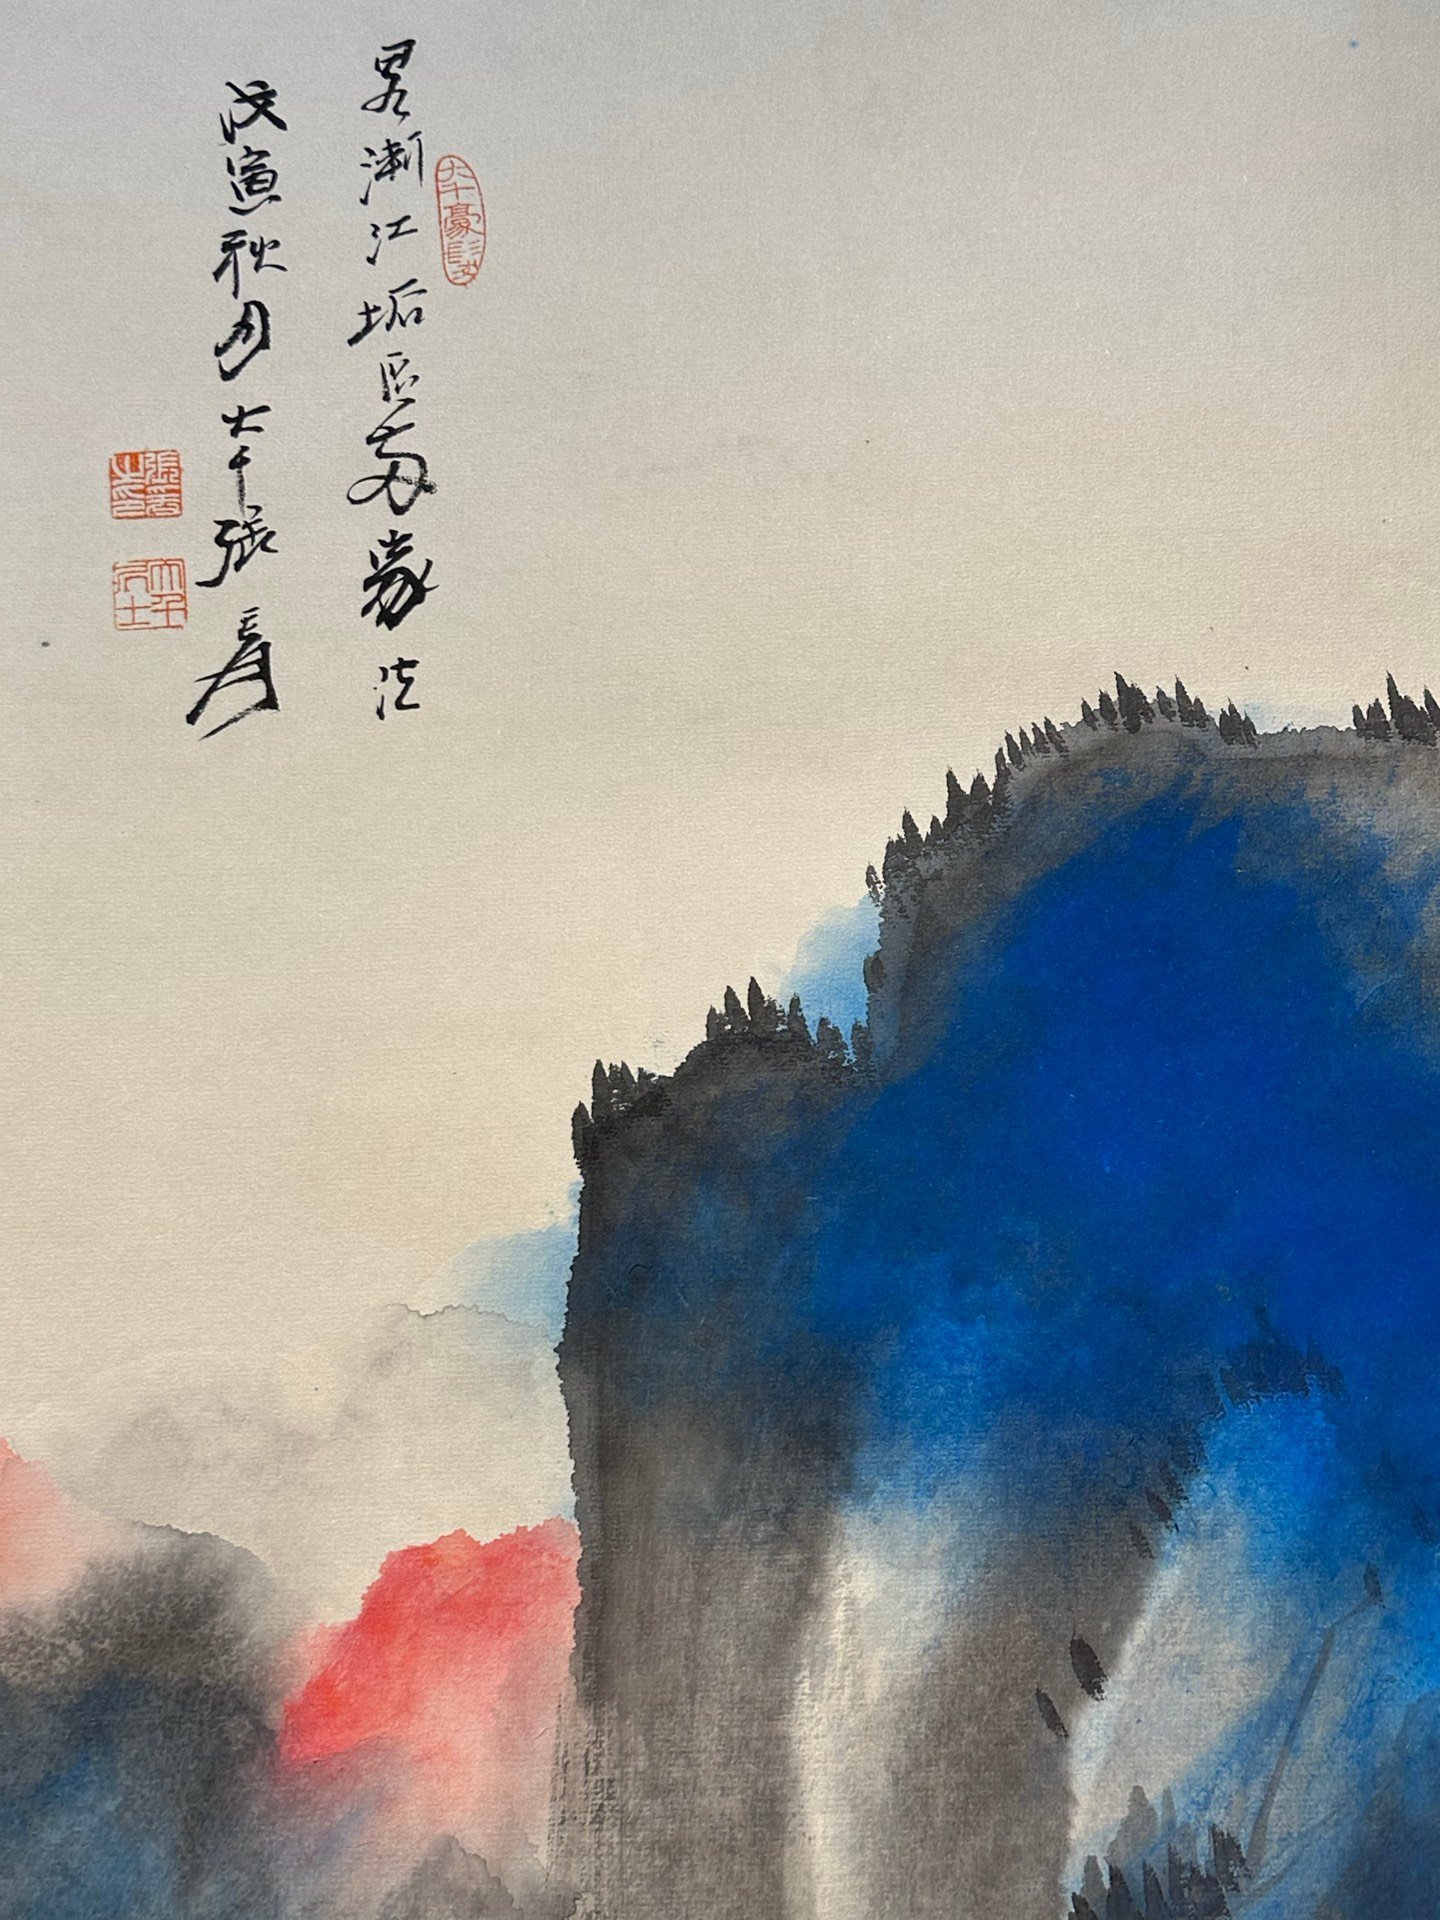 畧漸江垢區兩家法
戊寅秋月大千張爰
大千豪髮
張爰之印
大千居士